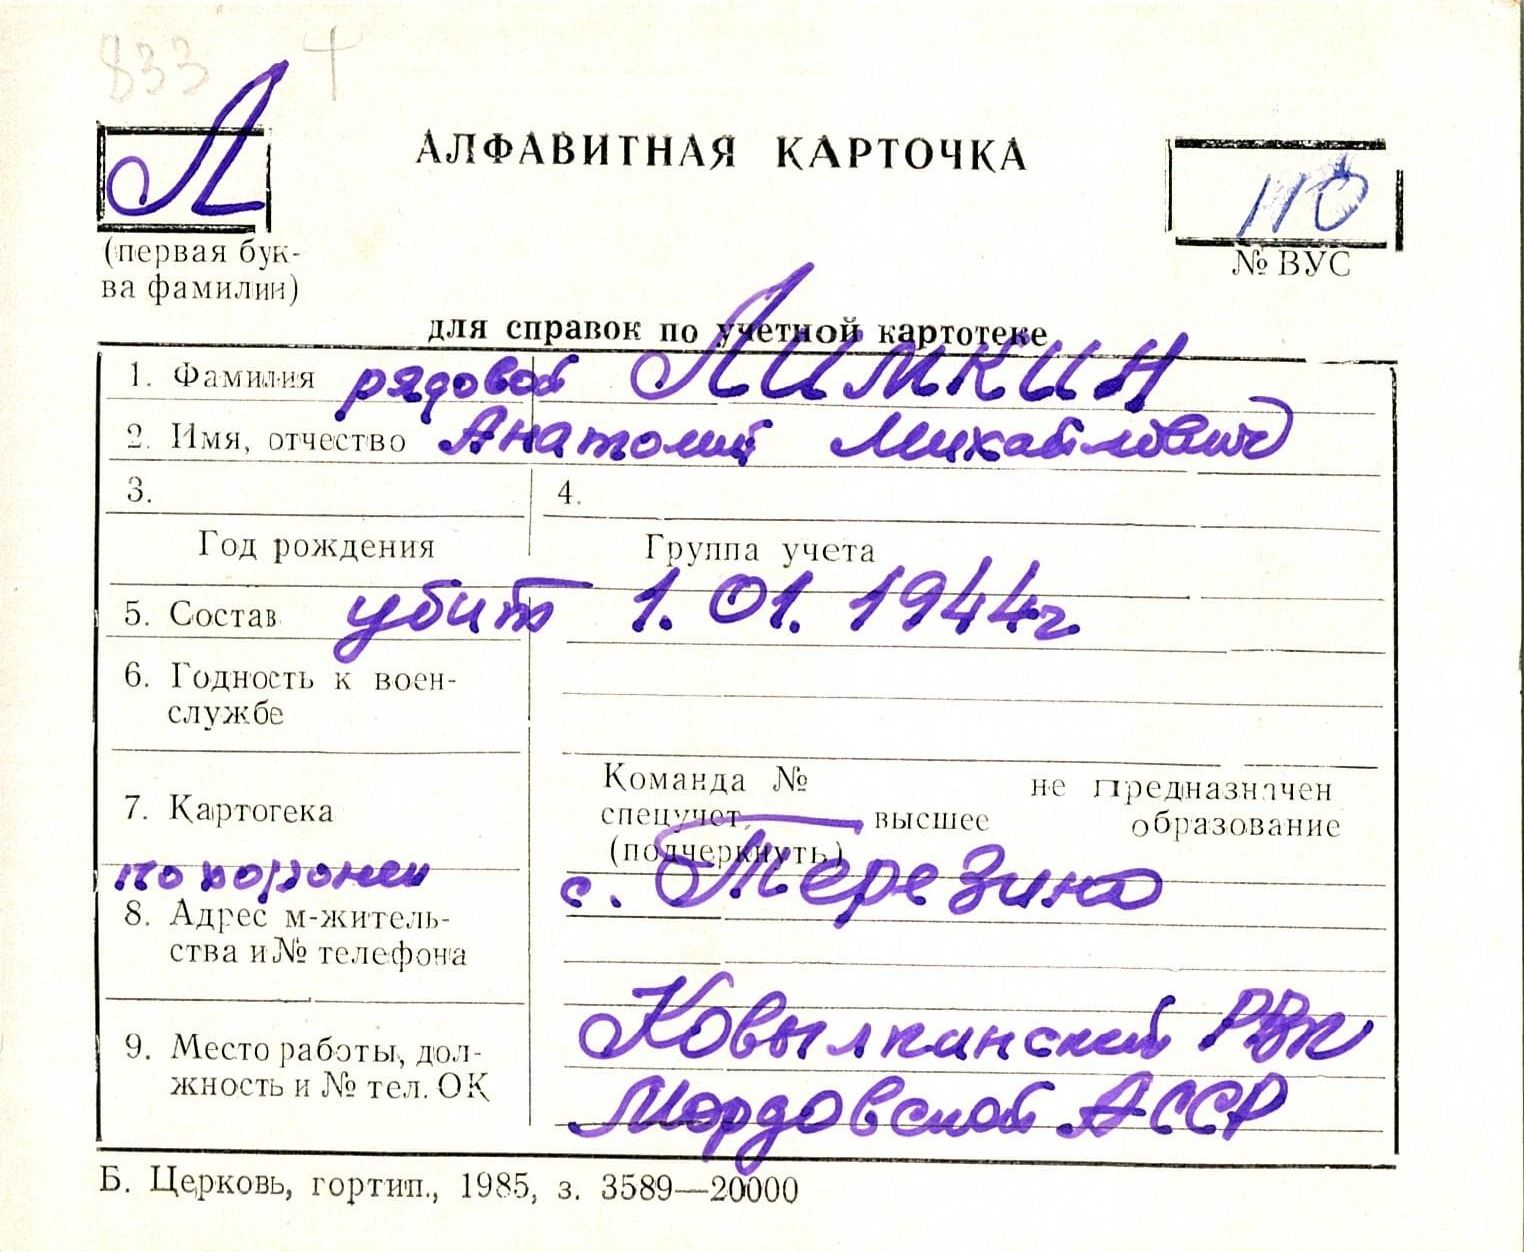 833 †
Л
АЛФАВИТНАЯ КАРТОЧКА
110
(первая бук-
ва фамилии)
№ ВУС
для справок по учетной картотеке
1. Фамилия рядовой Лимкин
2. Имя, отчество Анатолий Михайлович
3. 4.
Год рождения Группа учета
5. Состав убит 1.01.1944г
6. Годность к воен-
службе
Команда № не предназначен
7. Картотека спецучет высшее образование
(подчеркнуть)
похоронен с. Терезино
8. Адрес м-житель-
ства и № телефона
Ковылкинский РВК
9. Место работы, дол-
жность и № тел. ОК
Мордовской АССР
Б. Церковь, гортип., 1985, з. 3589—20000